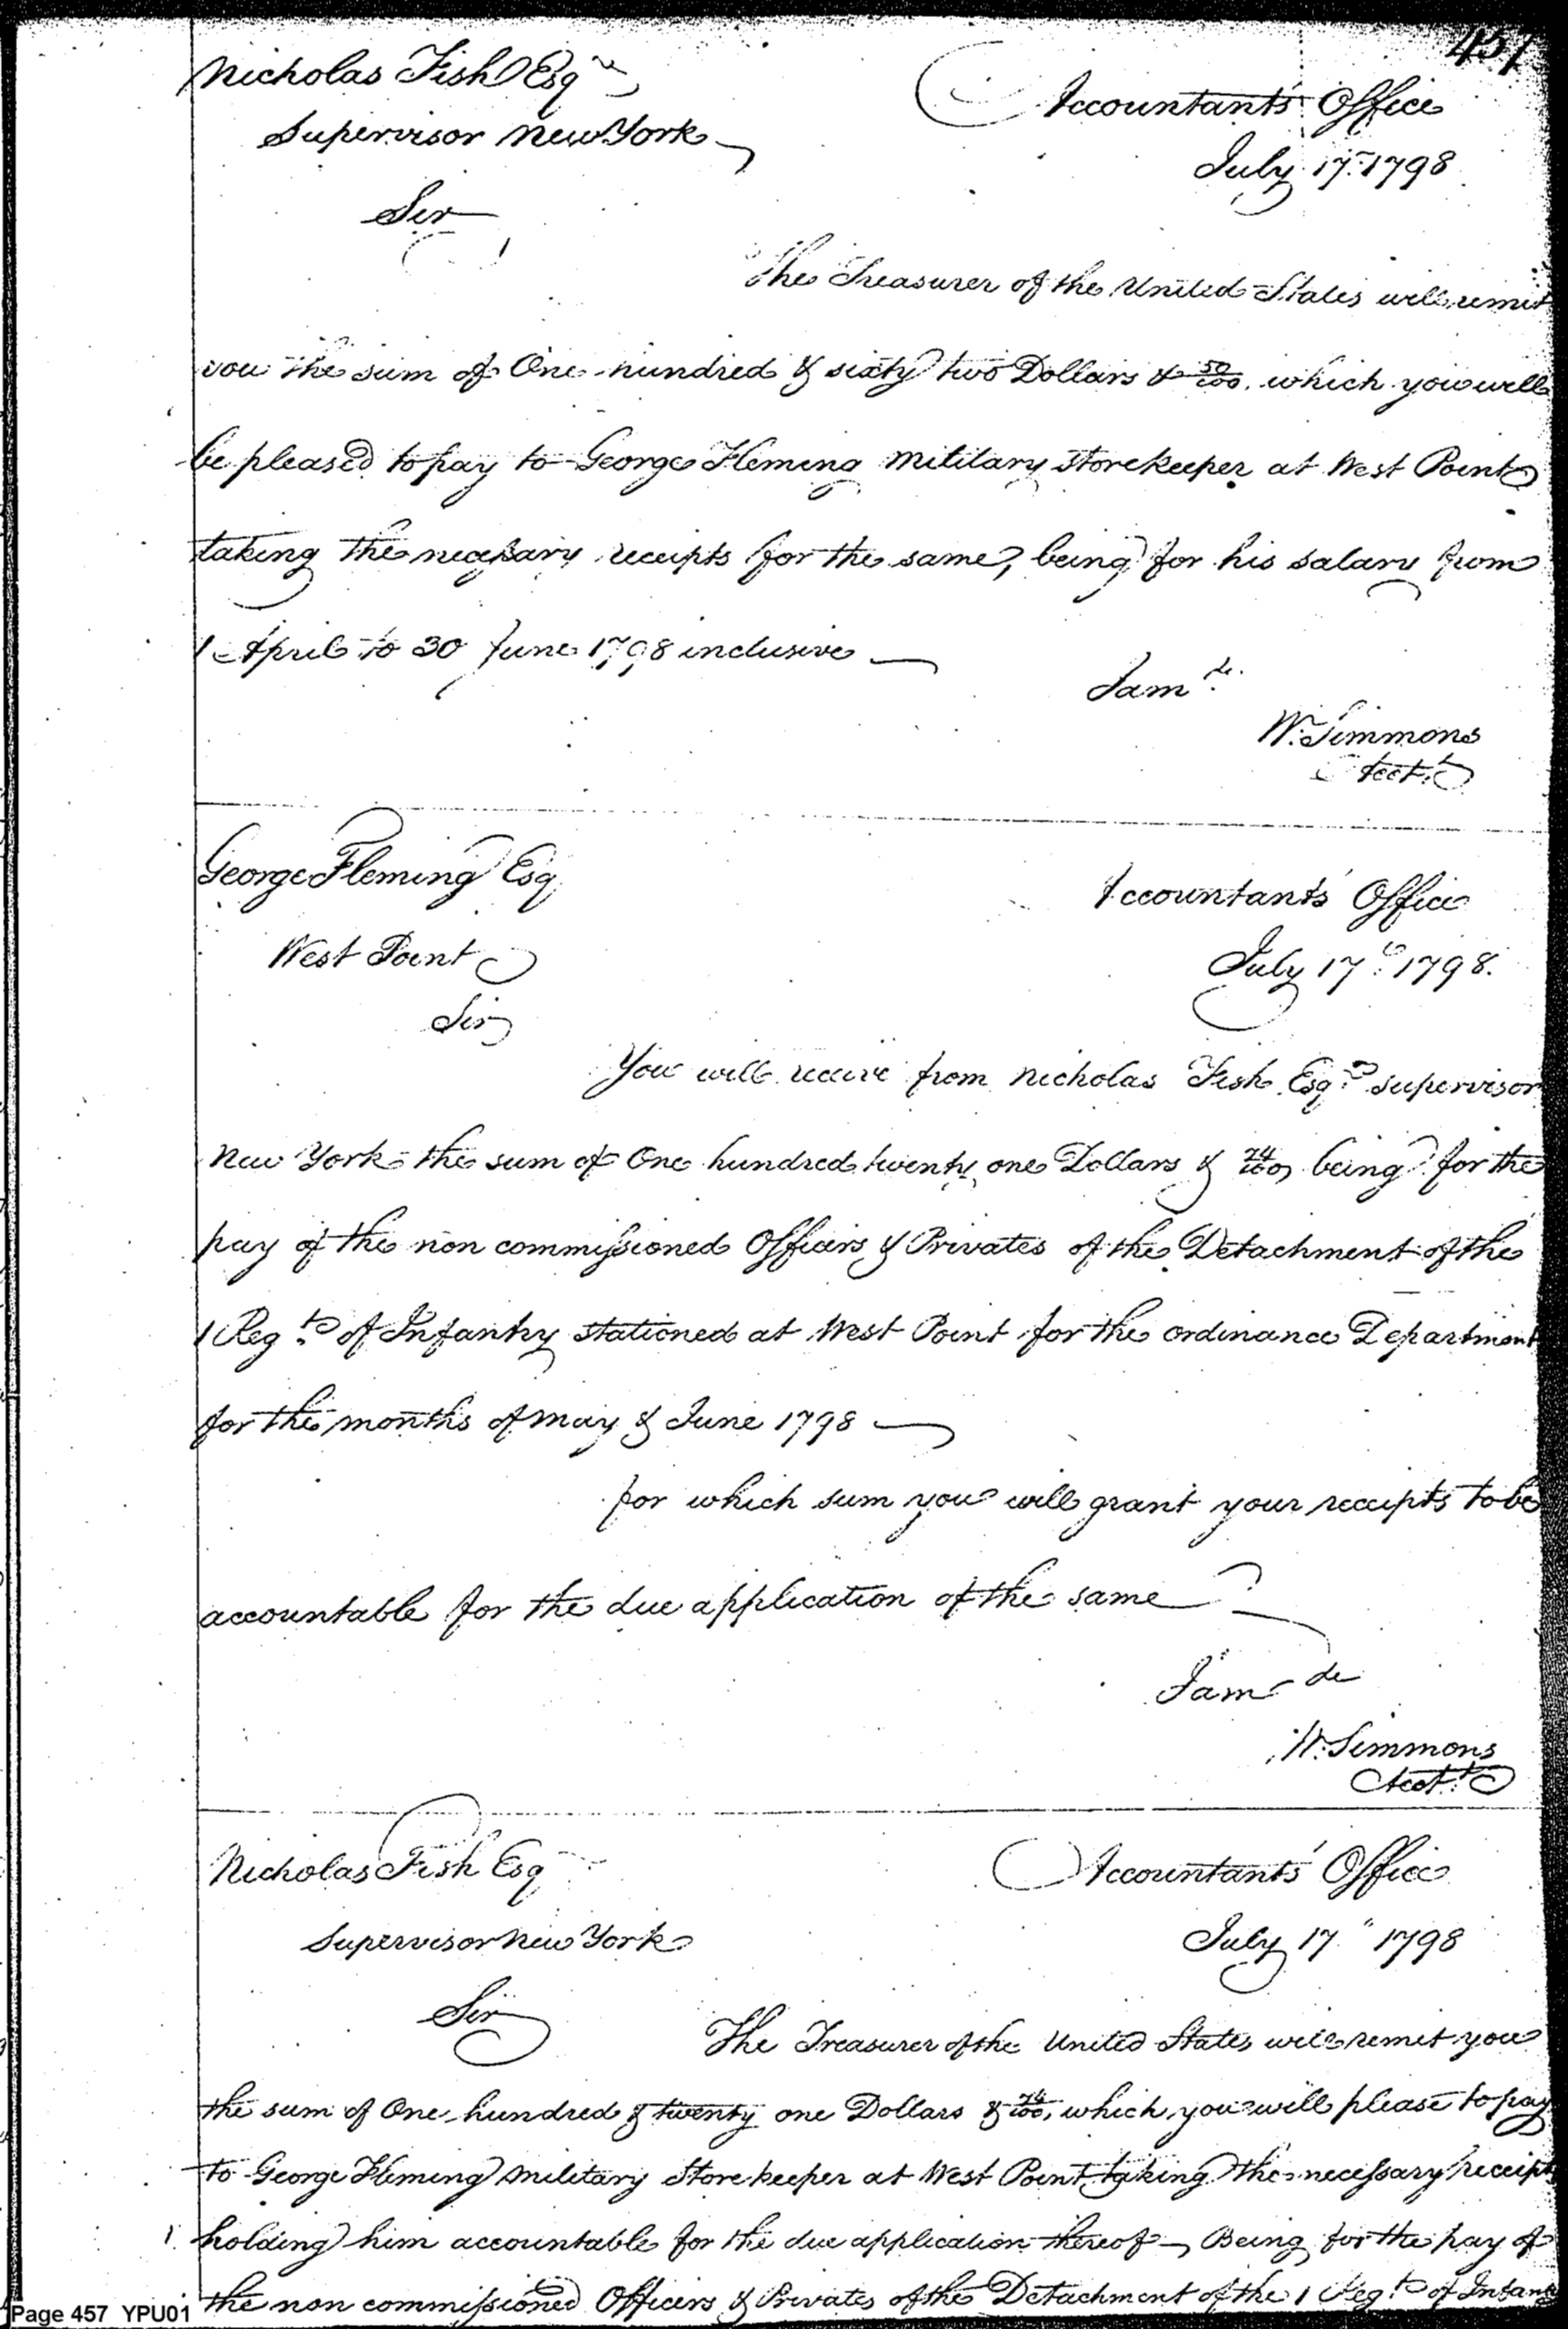 457
Nicholas Fish Esqr
Accountants' Office
Supervisor New York
July 17. 1798
Sir
The Treasurer of the United States will remit
you the sum of One hundred & sixty two Dollars & 50/100. which you will
be pleased to pay to George Fleming Military Storekeeper at West Point
taking the necessary receipts for the same, being for his salary from
1 April to 30 June 1798 inclusive
I am &c.
W. Simmons
Acct.t
George Fleming Esq
Accountants' Office
West Point
July 17th 1798.
Sir
You will receive from Nicholas Fish Esqr supervisor
New York the sum of One hundred twenty one Dollars & 74/100, being for the
pay of the non commissioned Officers & Privates of the Detachment of the
1 Regt. of Infantry stationed at West Point for the ordinance Department
for the months of May & June 1798
for which sum you will grant your receipts to be
accountable for the due application of the same
I am &c
W. Simmons
Acct.t
Nicholas Fish Esq
Accountants' Office
Supervisor New York
July 17" 1798
Sir
The Treasurer of the United States will remit you
the sum of One hundred & twenty one Dollars & 74/100, which you will please to pay
to George Fleming Military Storekeeper at West Point taking the necessary receipts
holding him accountable for the due application thereof, Being for the pay of
the non commissioned Officers & Privates of the Detachment of the 1 Regt. of Infant
Page 457 YPU01